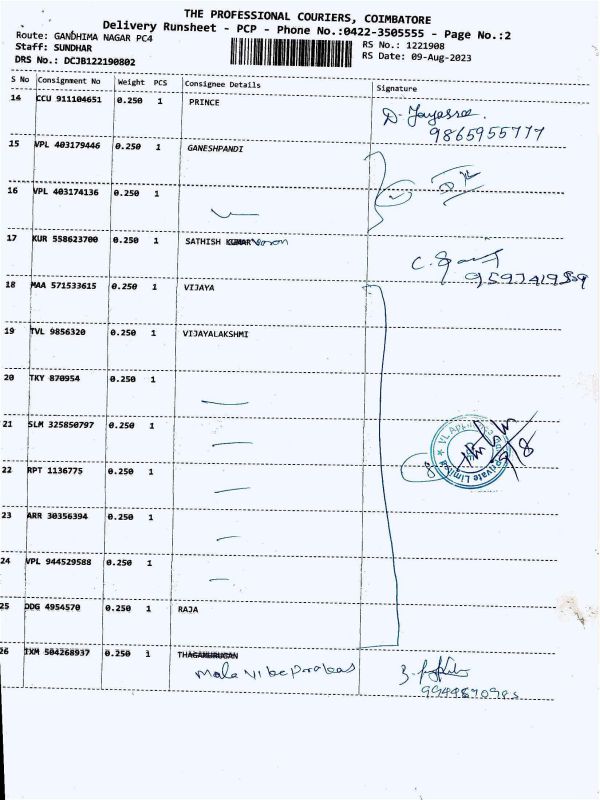 THE PROFESSIONAL COURIERS, COIMBATORE
Delivery Runsheet - PCP - Phone No.:0422-3505555 - Page No.:2
Route: GANDHIMA NAGAR PC4
RS No.: 1221908
Staff: SUNDHAR
RS Date: 09-Aug-2023
DRS No.: DCJB122190802
S No Consignment No Weight PCS Consignee Details Signature
14 CCU 911104651 0.250 1 PRINCE D. Jayasree.
9865955777
15 VPL 403179446 0.250 1 GANESHPANDI
16 VPL 403174136 0.250 1
17 KUR 558623700 0.250 1 SATHISH KUMAR
18 MAA 571533615 0.250 1 VIJAYA
19 TVL 9856320 0.250 1 VIJAYALAKSHMI
20 TKY 870954 0.250 1
21 SLM 325850797 0.250 1
22 RPT 1136775 0.250 1
Private Limited
23 ARR 30356394 0.250 1
24 VPL 944529588 0.250 1
25 DDG 4954570 0.250 1 RAJA
26 IXM 504268937 0.250 1